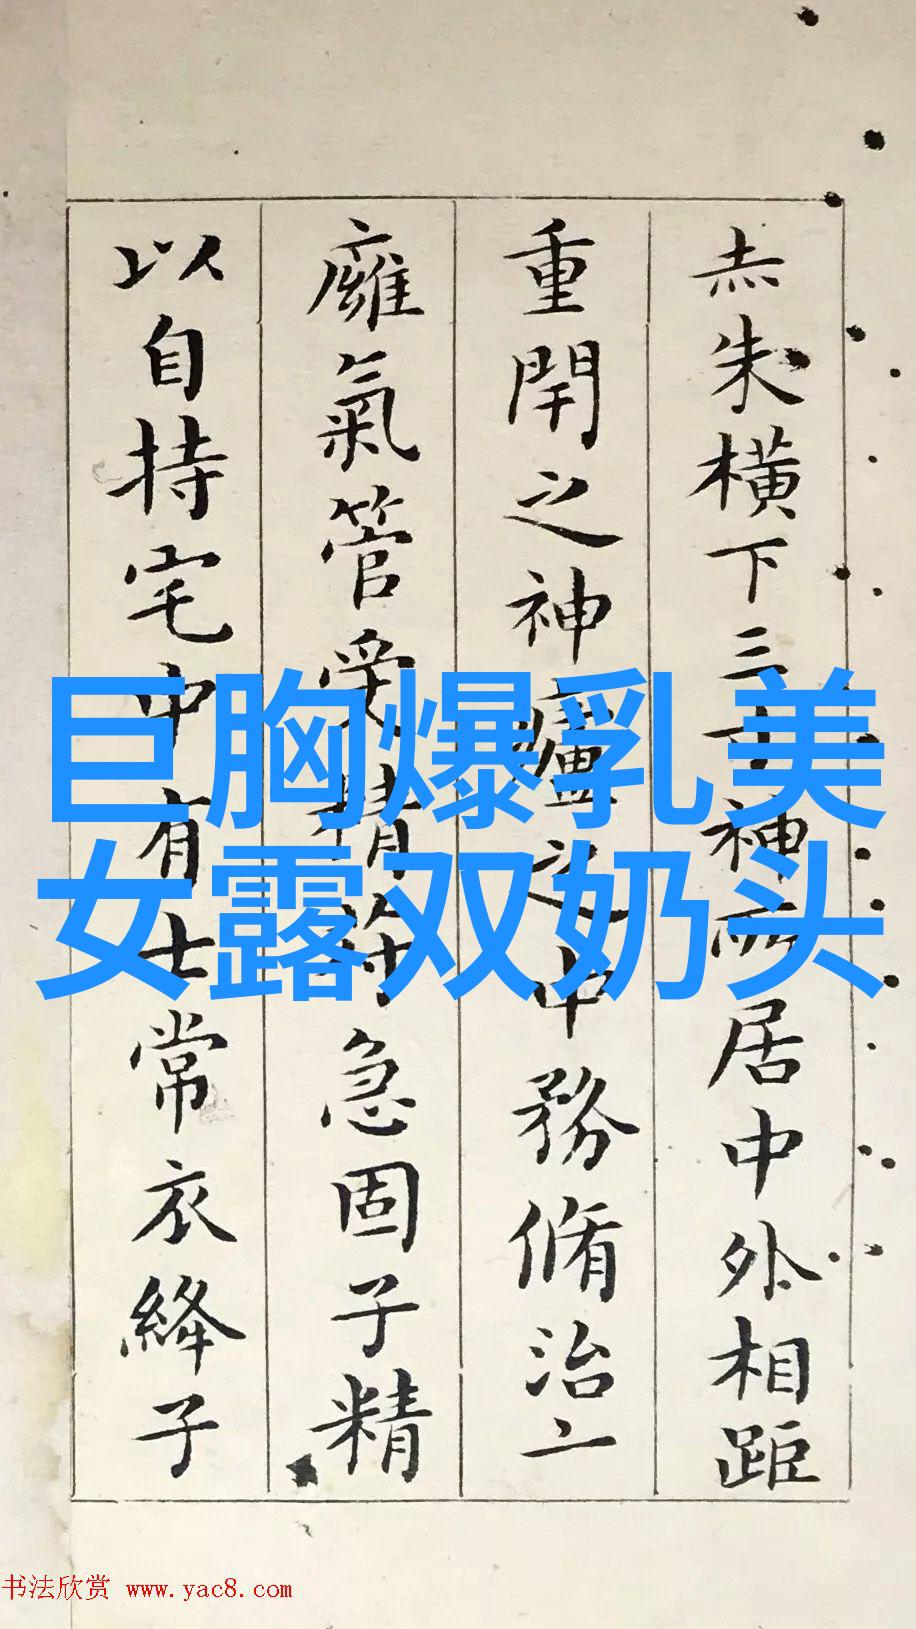 赤朱橫下三寸神所居中外相距
重閇之神廬之中務脩治
廱氣管受精符急固子精
以自持宅中有士常衣絳子
巨胸爆乳美
女露双奶头
书法欣赏 www.yac8.com